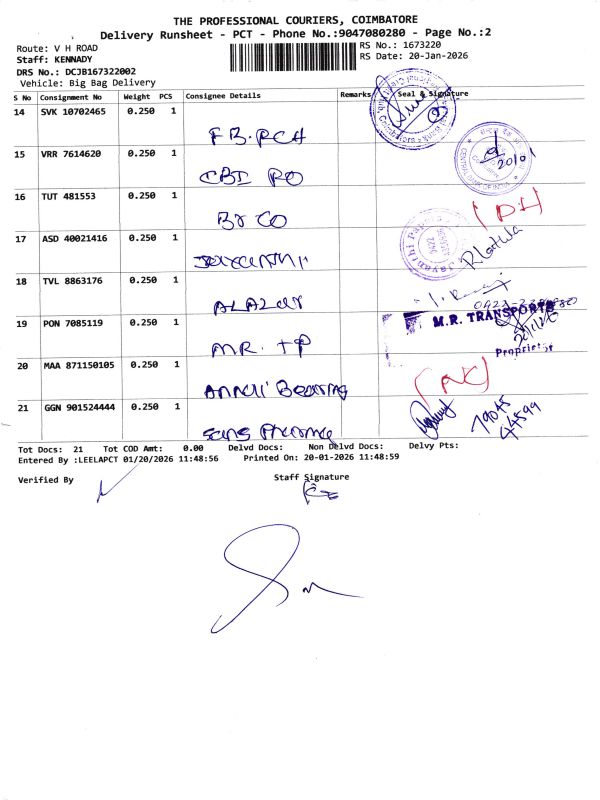 THE PROFESSIONAL COURIERS, COIMBATORE
Delivery Runsheet - PCT - Phone No.:9047080280 - Page No.:2
Route: V H ROAD
Staff: KENNADY
DRS No.: DCJB167322002
Vehicle: Big Bag Delivery
RS No.: 1673220
RS Date: 20-Jan-2026
S No Consignment No Weight PCS Consignee Details Remarks Seal & Signature
14 SVK 10702465 0.250 1
FB.PCH
15 VRR 7614620 0.250 1
CBI RO
20/01
16 TUT 481553 0.250 1
Br CO
(DH)
17 ASD 40021416 0.250 1
Jayanthi
R Latha
18 TVL 8863176 0.250 1
19 PON 7085119 0.250 1
MR. TP
M.R. TRANSPORTS
Proprietor
20 MAA 871150105 0.250 1
Annai Bearing
21 GGN 901524444 0.250 1
Sans Pharma
79045
44599
Tot Docs: 21 Tot COD Amt: 0.00 Delvd Docs: Non Delvd Docs: Delvy Pts:
Entered By :LEELAPCT 01/20/2026 11:48:56 Printed On: 20-01-2026 11:48:59
Verified By Staff Signature